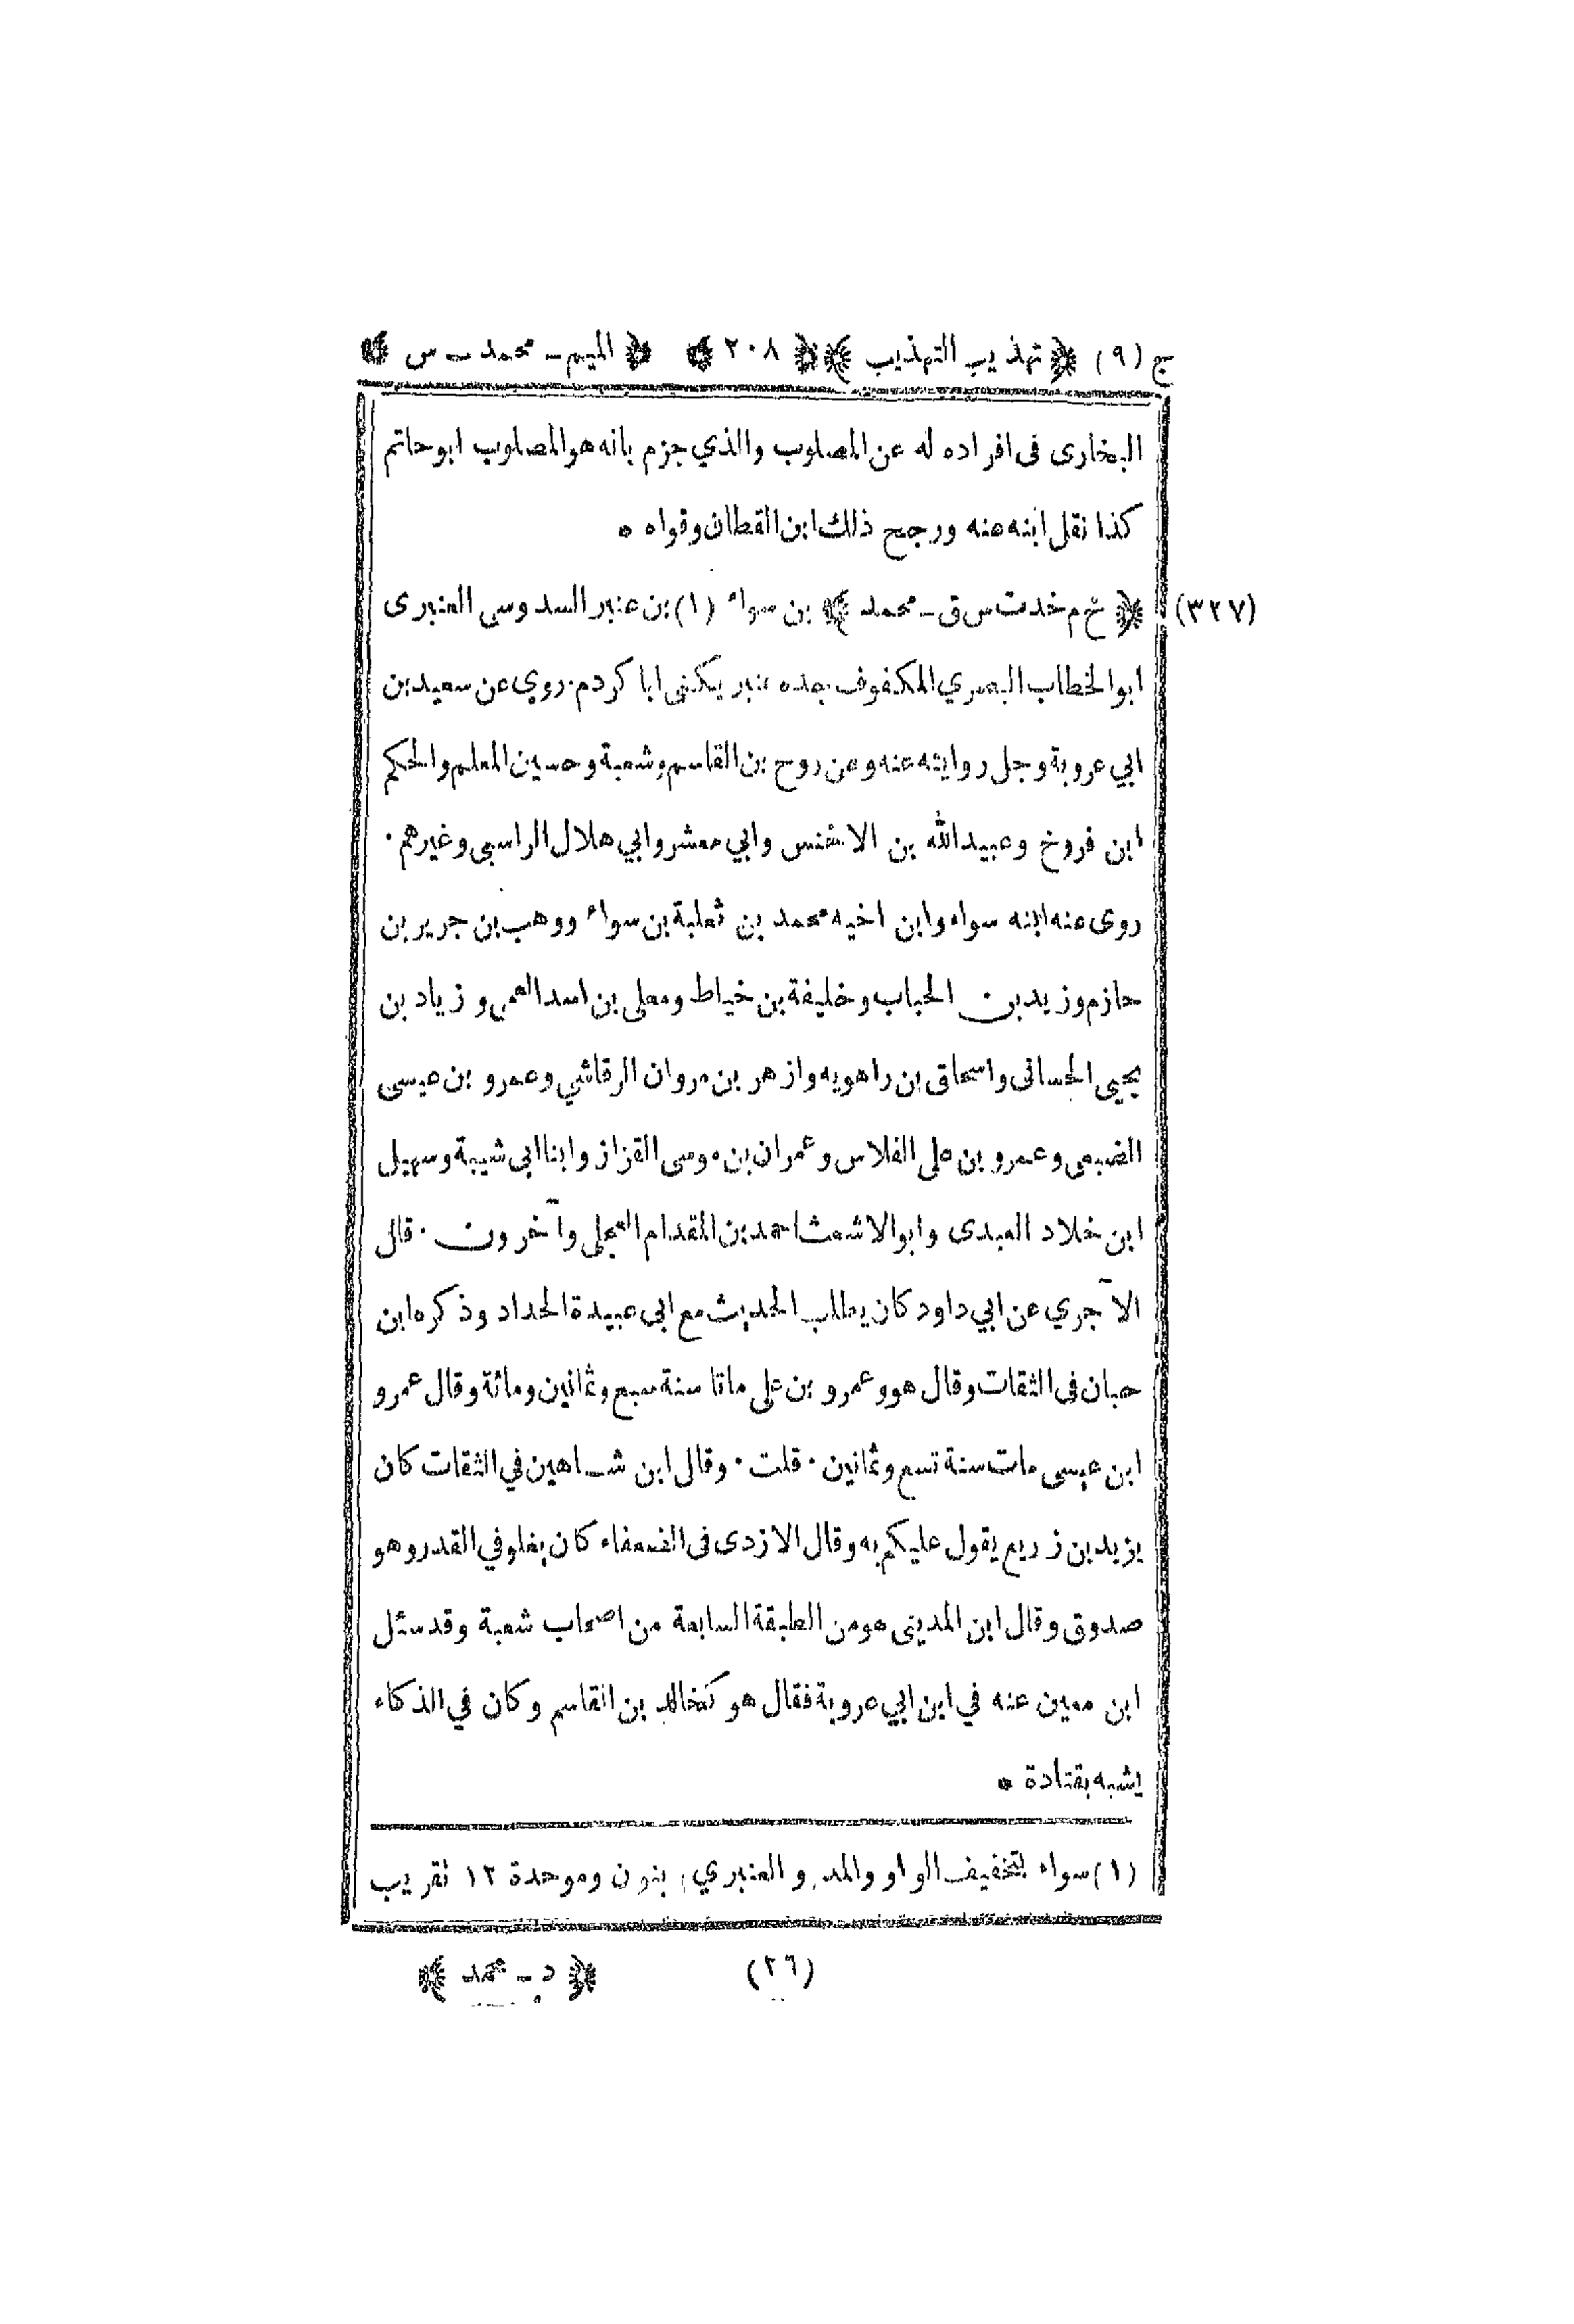 ج (٩) ﴿ تهذيب التهذيب ﴾ ﴿ ٢٠٨ ﴾ ﴿ الميم - محمد - س ﴾
البخارى فى افراده له عن المصلوب والذي جزم بانه هو المصلوب ابوحاتم
كذا نقل ابنه عنه ورجح ذلك ابن القطان وقواه *
(٣٢٧) ﴿ خ م خدت س ق - محمد ﴾ بن سواء (١) بن عنبر السدوسي العنبرى
ابو الخطاب البصري المكفوف جده عنبر يكنى ابا كردم. روي عن سعيد بن
ابي عروبة وجل روايته عنه وعن روح بن القاسم وشعبة وحسين المعلم والحكم
ابن فروخ وعبيدالله بن الاخنس وابي معشر وابي هلال الراسبي وغيرهم.
روى عنه ابنه سواء وابن اخيه محمد بن ثعلبة بن سواء ووهب بن جرير بن
حازم وزيد بن الحباب وخليفة بن خياط ومعلى بن اسد العمي و زياد بن
يحيى الحسانى واسحاق بن راهويه وازهر بن مروان الرقاشي وعمرو بن عيسى
الضبعى وعمرو بن على الفلاس وعمران بن موسى القزاز وابنا ابى شيبة وسهيل
ابن خلاد العبدى وابو الاشعث احمد بن المقدام العجلي وآخرون. قال
الآجري عن ابي داود كان يطلب الحديث مع ابى عبيدة الحداد وذكره ابن
حبان فى الثقات وقال هو وعمرو بن على ماتا سنة سبع وثمانين ومائة وقال عمرو
ابن عيسى مات سنة تسع وثمانين. قلت. وقال ابن شاهين في الثقات كان
يزيد بن زريع يقول عليكم به وقال الازدى فى الضعفاء كان يغلو في القدر وهو
صدوق وقال ابن المدينى هو من الطبقة السابعة من اصحاب شعبة وقد سئل
ابن معين عنه في ابن ابي عروبة فقال هو كخالد بن القاسم وكان في الذكاء
يشبه بقتادة *
(١) سواء بتخفيف الواو والمد و العنبري بنون وموحدة ١٢ تقريب
(٢٦) ﴿ د - محمد ﴾